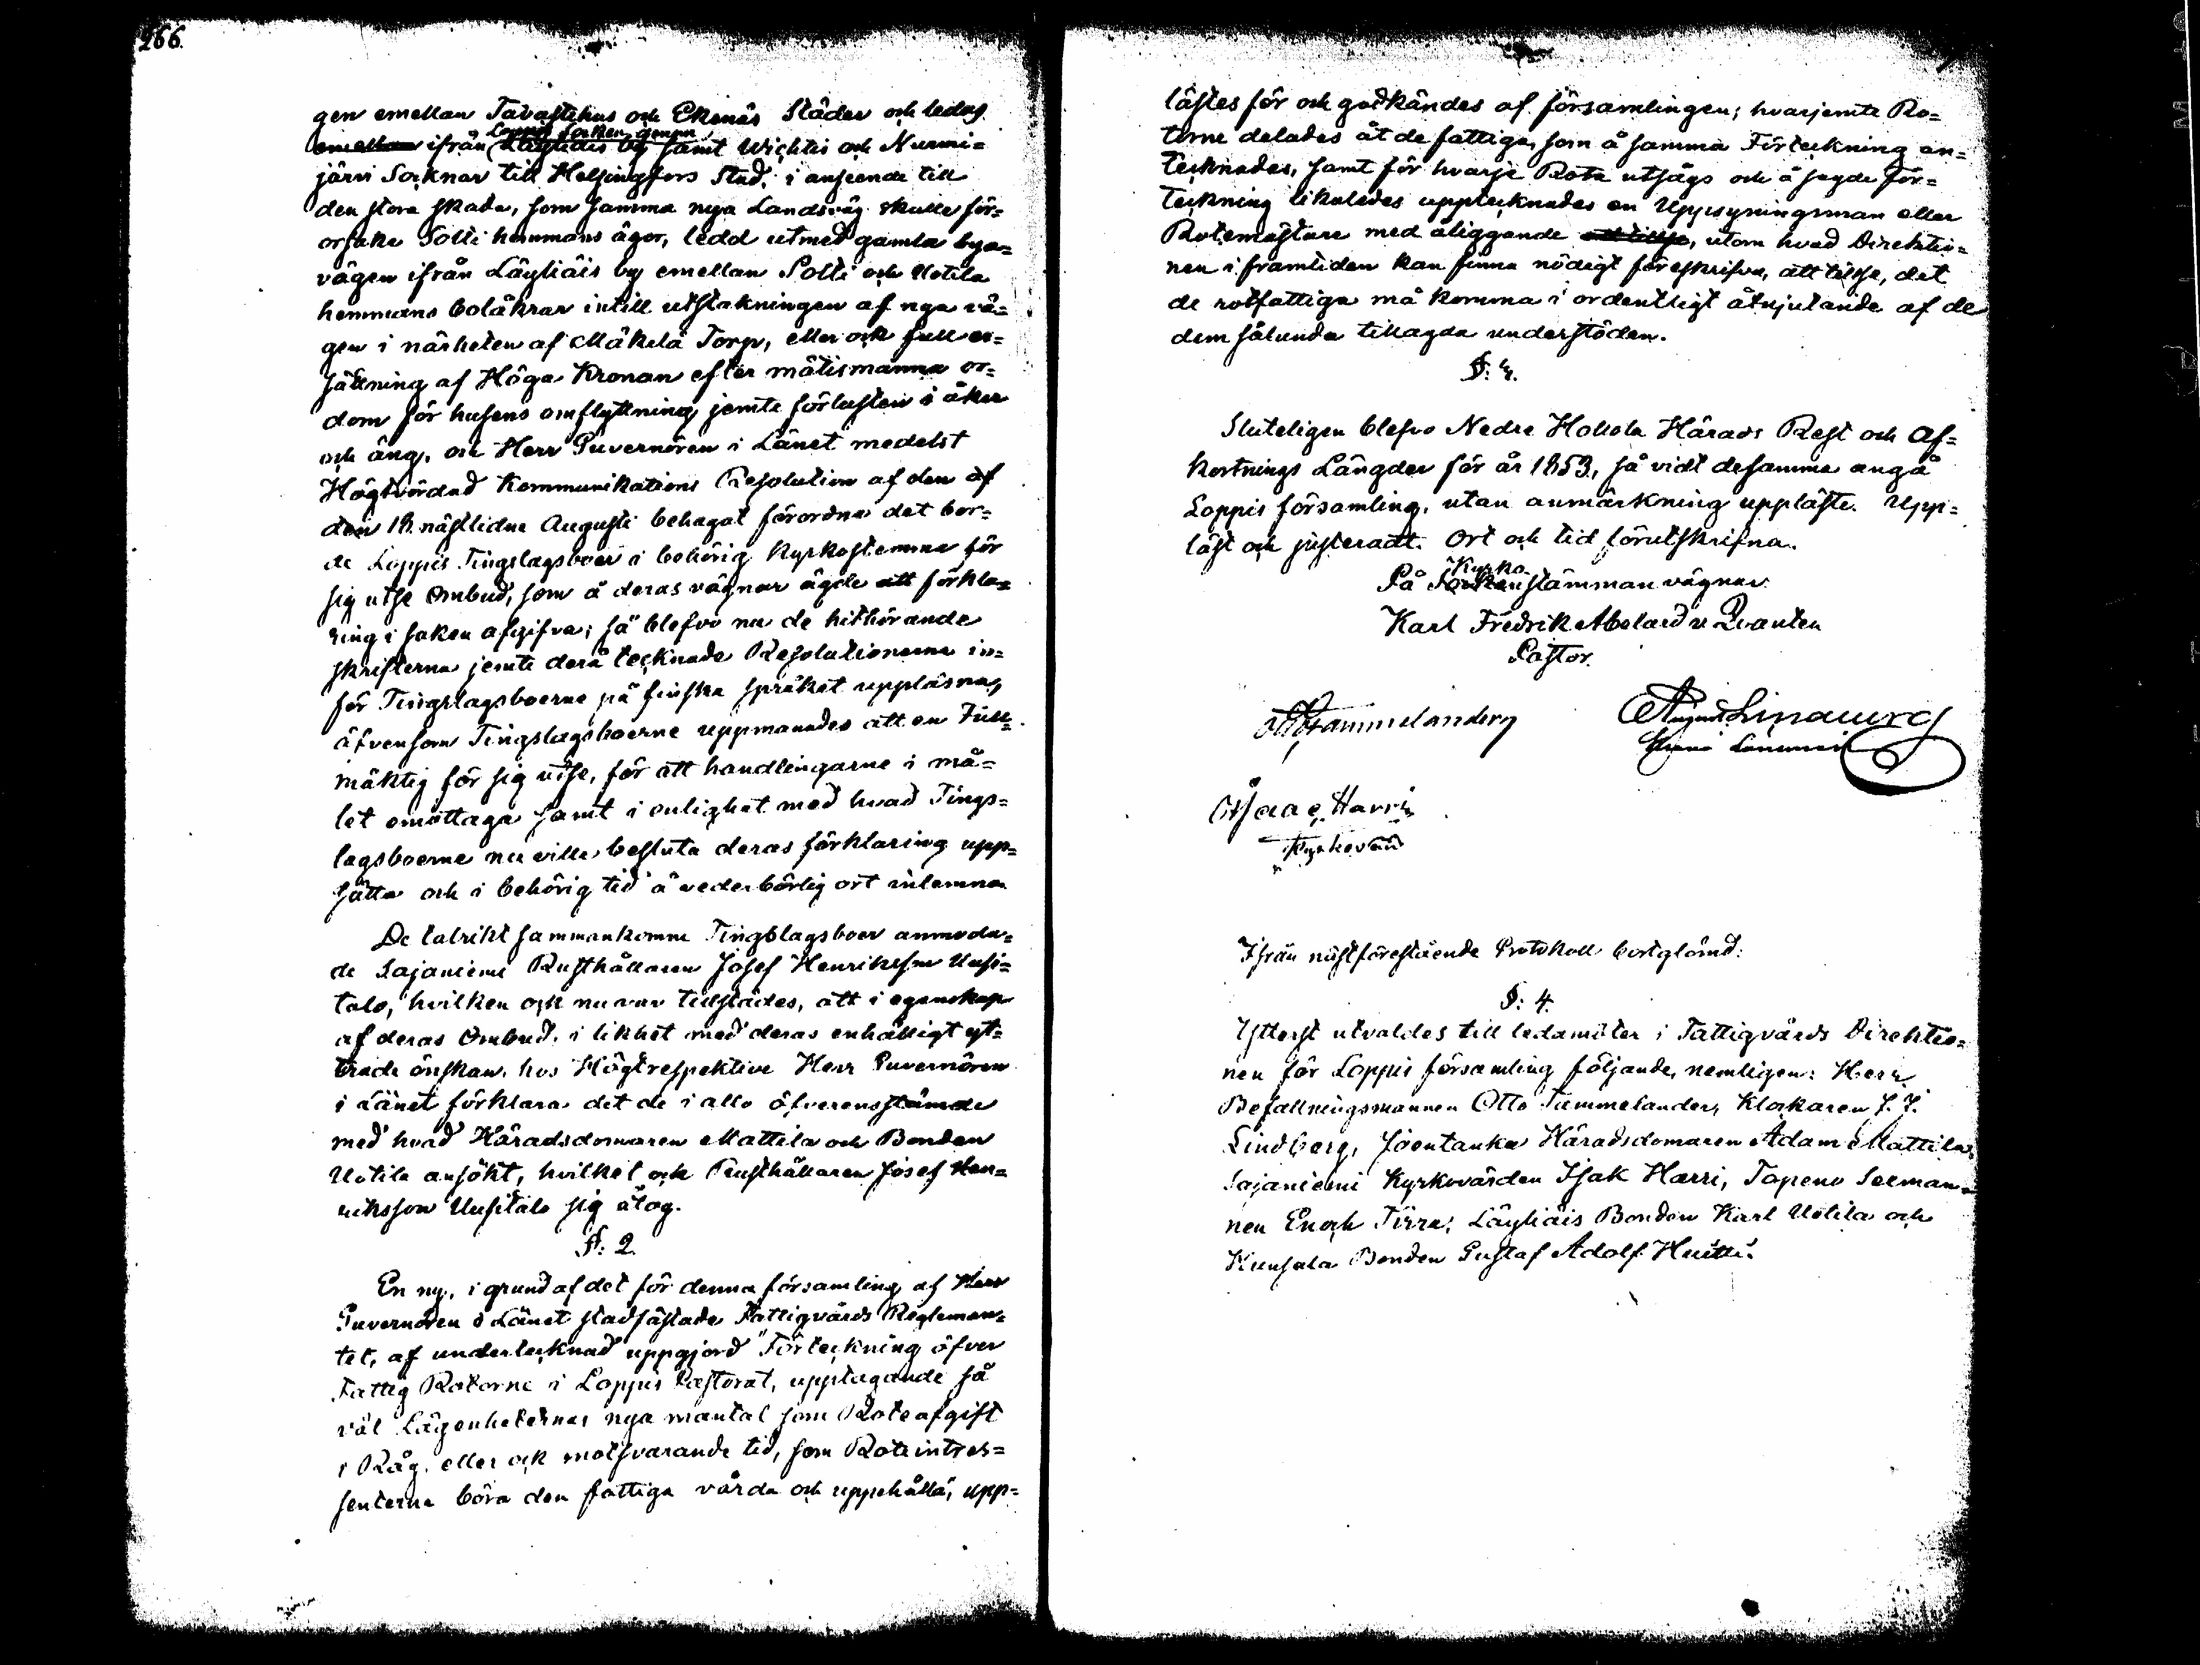 266.
gen emellan Tavastehus och Ekenäs Städer och ledas
Loppis socken genom
emellan ifrån Läyliäis by samt Wichtis och Nurmi=
järvi Socknar till Helsingfors Stad, i anseende till
den stora skada, som samma nya Landsväg skulle för=
orsaka Solti hemmans ägor, ledd utmed gamla bya=
vägen ifrån Läyliäis by emellan Solti och Uotila
hemmans bolåkrar intill utstakningen af nya vä=
gen i närheten af Mäkelä Torp, eller ock full er=
sättning af Höga Kronan efter mätismanna or=
dom för husens omflyttning jemte förlusten i åker
och äng, och Herr Guvernören i Länet medelst
Högtvördad Kommunikations Resolution af den af
den 18 nästlidne Augusti behagat förordna det bor=
de Loppis Tingslagsboer i behörig Kyrkostemma för
sig utse Ombud, som å deras vägnar ägde att förkla=
ring i saken afgifva; så blefvo nu de hithörande
skrifterna jemte derå tecknade Resolutionerna in=
för Tingslagsboerne på finska språket uppläsna,
äfvensom Tingslagsboerne uppmanades att en Full=
mäktig för sig utse, för att handlingarne i må=
let emottaga samt i enlighet med hvad Tings=
lagsboerne nu ville besluta deras förklaring upp=
sätta och i behörig tid å vederbörlig ort inlemna.
De talrikt sammankomne Tingslagsboer anmoda=
de Sajaniemi Rusthållaren Josef Henriksson Uusi=
talo, hvilken ock nu var tillstädes, att i egenskap
af deras Ombud, i likhet med deras enhälligt yt=
trade önskan, hos Högtrespektive Herr Guvernören
i Länet förklara det de i allo öfverensstämde
med hvad Häradsdomaren Mattila och Bonden
Uotila ansökt, hvilket och Rusthållaren Josef Hen=
riksson Uusitalo sig åtog.
§: 2.
En ny, i grund af det för denna församling af Herr
Guvernören i Länet stadfästade Fattigvårds Reglemen=
tet, af undertecknad uppgjord "Förteckning öfver
Fattig Rotorne i Loppis Pastorat, upptagande så
väl Lägenheternas nya mantal som Roteafgift
i Råg, eller ock motsvarande tid, som Roteintres=
senterna böra den fattiga vårda och uppehålla", upp=
lästes för och godkändes af församlingen; hvarjemte Ro=
torne delades åt de fattiga, som å samma Förteckning an=
tecknades, samt för hvarje Rota utsågs och å sagde För=
teckning likaledes upptecknades en Uppsyningsman eller
Rotemästare med åliggande att tillse, utom hvad Direktio=
nen i framtiden kan finna nödigt föreskrifva, att tillse, det
de rotfattiga må komma i ordentligt åtnjutande af de
dem sålunda tillagda understöden.
§: 3.
Sluteligen blefvo Nedre Hollola Härads Rest och Af=
kortnings Längder för år 1853, så vidt desamma angå
Loppis församling, utan anmärkning uppläste. Upp=
läst och justeradt. Ort och tid förutskrifna.
Kyrko
På Sockenstämman vägnar
Karl Fredrik Abelard v. Qvanten
Pastor.
Otto Tammelander
August Lindberg
Isaac Harri
Kyrkovärd
Ifrån nästförestående Protokoll bortglömd:
§: 4.
Ytterst utvaldes till ledamöter i Fattigvårds Direktio=
nen för Loppis församling följande, nemligen: Herr
Befallningsmannen Otto Tammelander, Klockaren J. J.
Lindberg, Joentanka Häradsdomaren Adam Mattila,
Sajaniemi Kyrkovärden Isak Harri, Topeno Seeman=
nen Enoch Tirra, Läyliäis Bonden Karl Uotila och
Kunsala Bonden Gustaf Adolf Huitti.